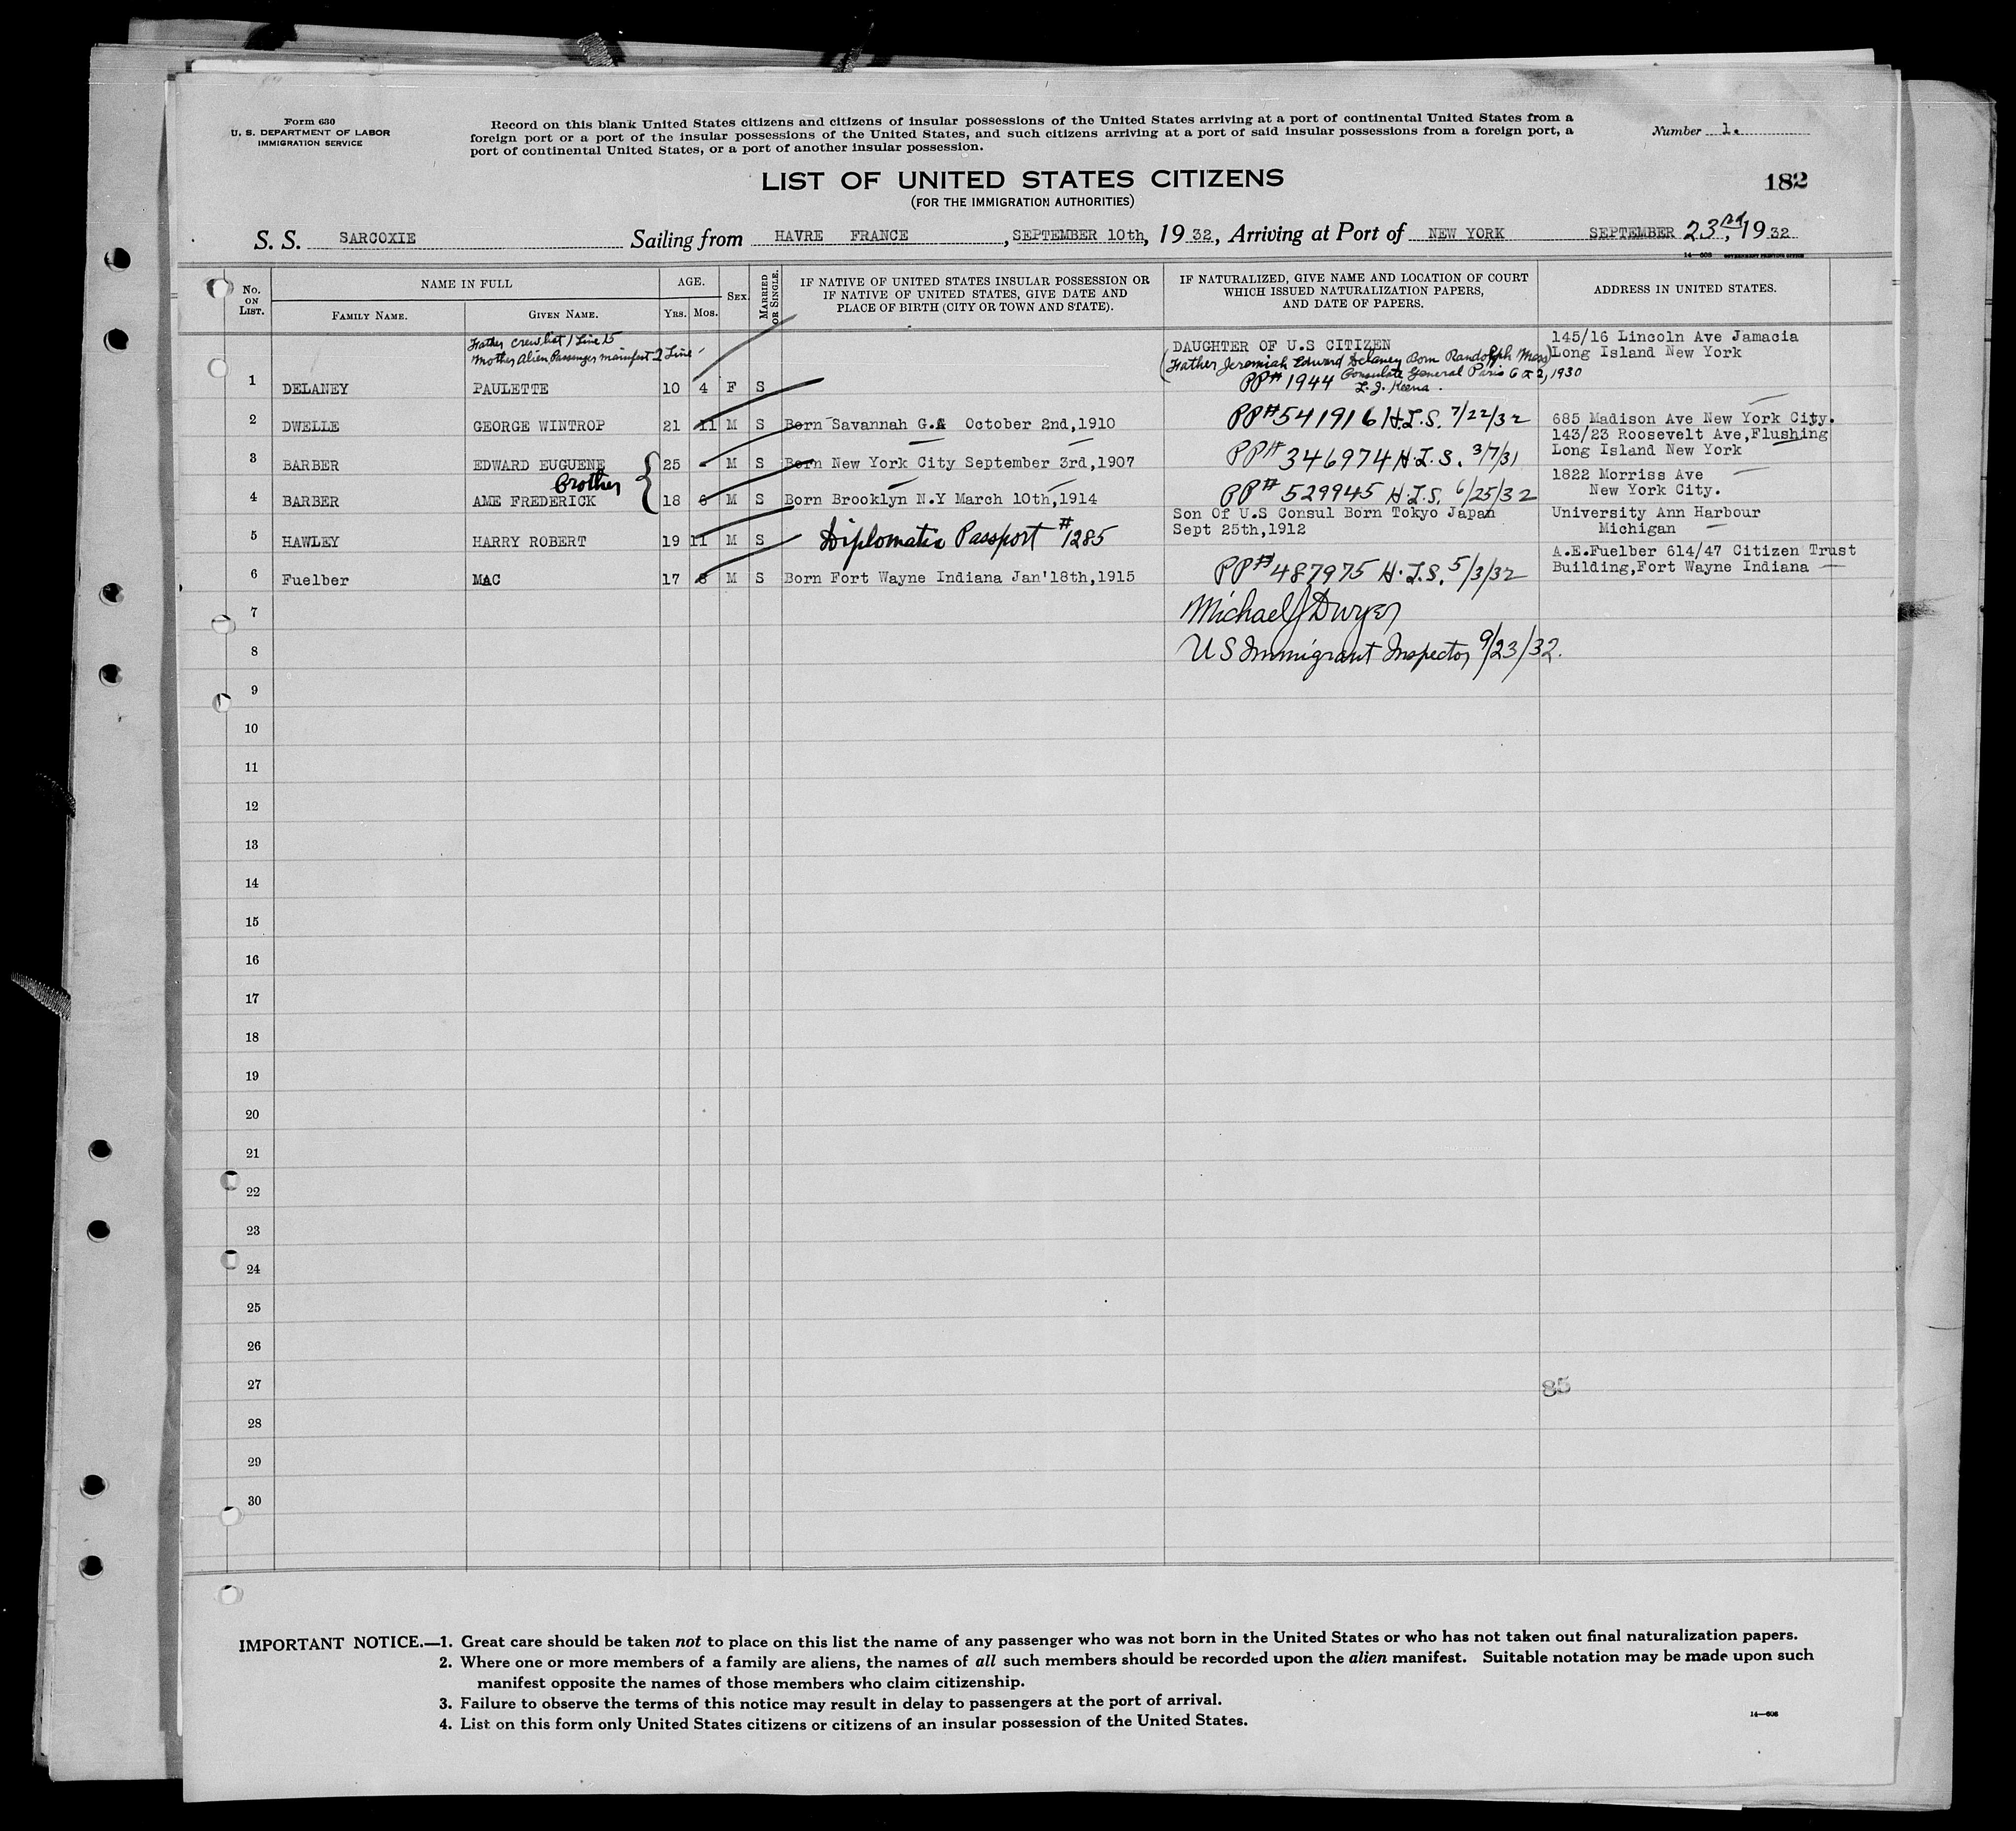 Form 630
U. S. DEPARTMENT OF LABOR
IMMIGRATION SERVICE
Record on this blank United States citizens and citizens of insular possessions of the United States arriving at a port of continental United States from a
foreign port or a port of the insular possessions of the United States, and such citizens arriving at a port of said insular possessions from a foreign port, a
port of continental United States, or a port of another insular possession.
Number 1.
LIST OF UNITED STATES CITIZENS
(FOR THE IMMIGRATION AUTHORITIES)
182
S. S. SARCOXIE Sailing from HAVRE FRANCE, SEPTEMBER 10th, 1932, Arriving at Port of NEW YORK SEPTEMBER 23rd, 1932
14—608 GOVERNMENT PRINTING OFFICE
No. ON LIST.
NAME IN FULL
FAMILY NAME.
GIVEN NAME.
AGE.
Yrs. Mos.
SEX.
MARRIED OR SINGLE.
IF NATIVE OF UNITED STATES INSULAR POSSESSION OR
IF NATIVE OF UNITED STATES, GIVE DATE AND
PLACE OF BIRTH (CITY OR TOWN AND STATE).
IF NATURALIZED, GIVE NAME AND LOCATION OF COURT
WHICH ISSUED NATURALIZATION PAPERS,
AND DATE OF PAPERS.
ADDRESS IN UNITED STATES.
Father crew list 1 Line 15
Mother Alien Passenger manifest 2 Line 1
DAUGHTER OF U.S CITIZEN
145/16 Lincoln Ave Jamacia
Long Island New York
(Father Jeremiah Edward Delaney Born Randolph Mass)
1 DELANEY PAULETTE 10 4 F S PP# 1944 Consulate General Paris 6 2, 1930
L. J. Keena.
2 DWELLE GEORGE WINTROP 21 11 M S Born Savannah G.A October 2nd,1910 PP# 541916 H.L.S. 7/22/32 685 Madison Ave New York City.
143/23 Roosevelt Ave,Flushing
3 BARBER EDWARD EUGUENE 25 - M S Born New York City September 3rd,1907 PP# 346974 H.L.S. 3/7/31 Long Island New York
Brother
1822 Morriss Ave
4 BARBER AME FREDERICK 18 6 M S Born Brooklyn N.Y March 10th,1914 PP# 529945 H.L.S. 6/25/32 New York City.
Son Of U.S Consul Born Tokyo Japan
Sept 25th,1912
University Ann Harbour
Michigan
5 HAWLEY HARRY ROBERT 19 11 M S Diplomatic Passport #1285
A.E.Fuelber 614/47 Citizen Trust
6 Fuelber MAC 17 8 M S Born Fort Wayne Indiana Jan'18th,1915 PP# 487975 H.L.S. 5/3/32 Building,Fort Wayne Indiana
7 Michael J Dwyer
8 US Immigrant Inspector 9/23/32.
9
10
11
12
13
14
15
16
17
18
19
20
21
22
23
24
25
26
27 85
28
29
30
IMPORTANT NOTICE.—1. Great care should be taken not to place on this list the name of any passenger who was not born in the United States or who has not taken out final naturalization papers.
2. Where one or more members of a family are aliens, the names of all such members should be recorded upon the alien manifest. Suitable notation may be made upon such
manifest opposite the names of those members who claim citizenship.
3. Failure to observe the terms of this notice may result in delay to passengers at the port of arrival.
4. List on this form only United States citizens or citizens of an insular possession of the United States.
14—608